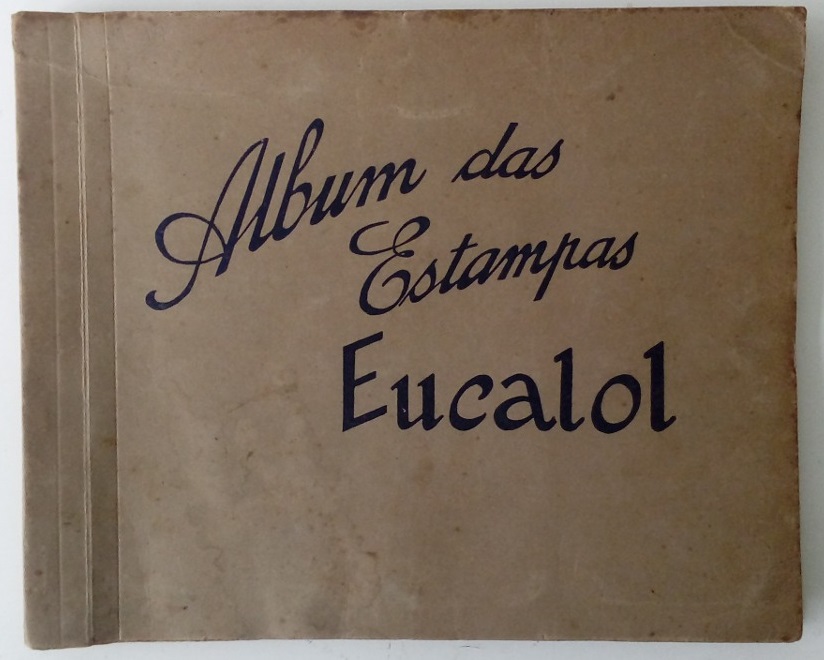 Album das
Estampas
Eucalol